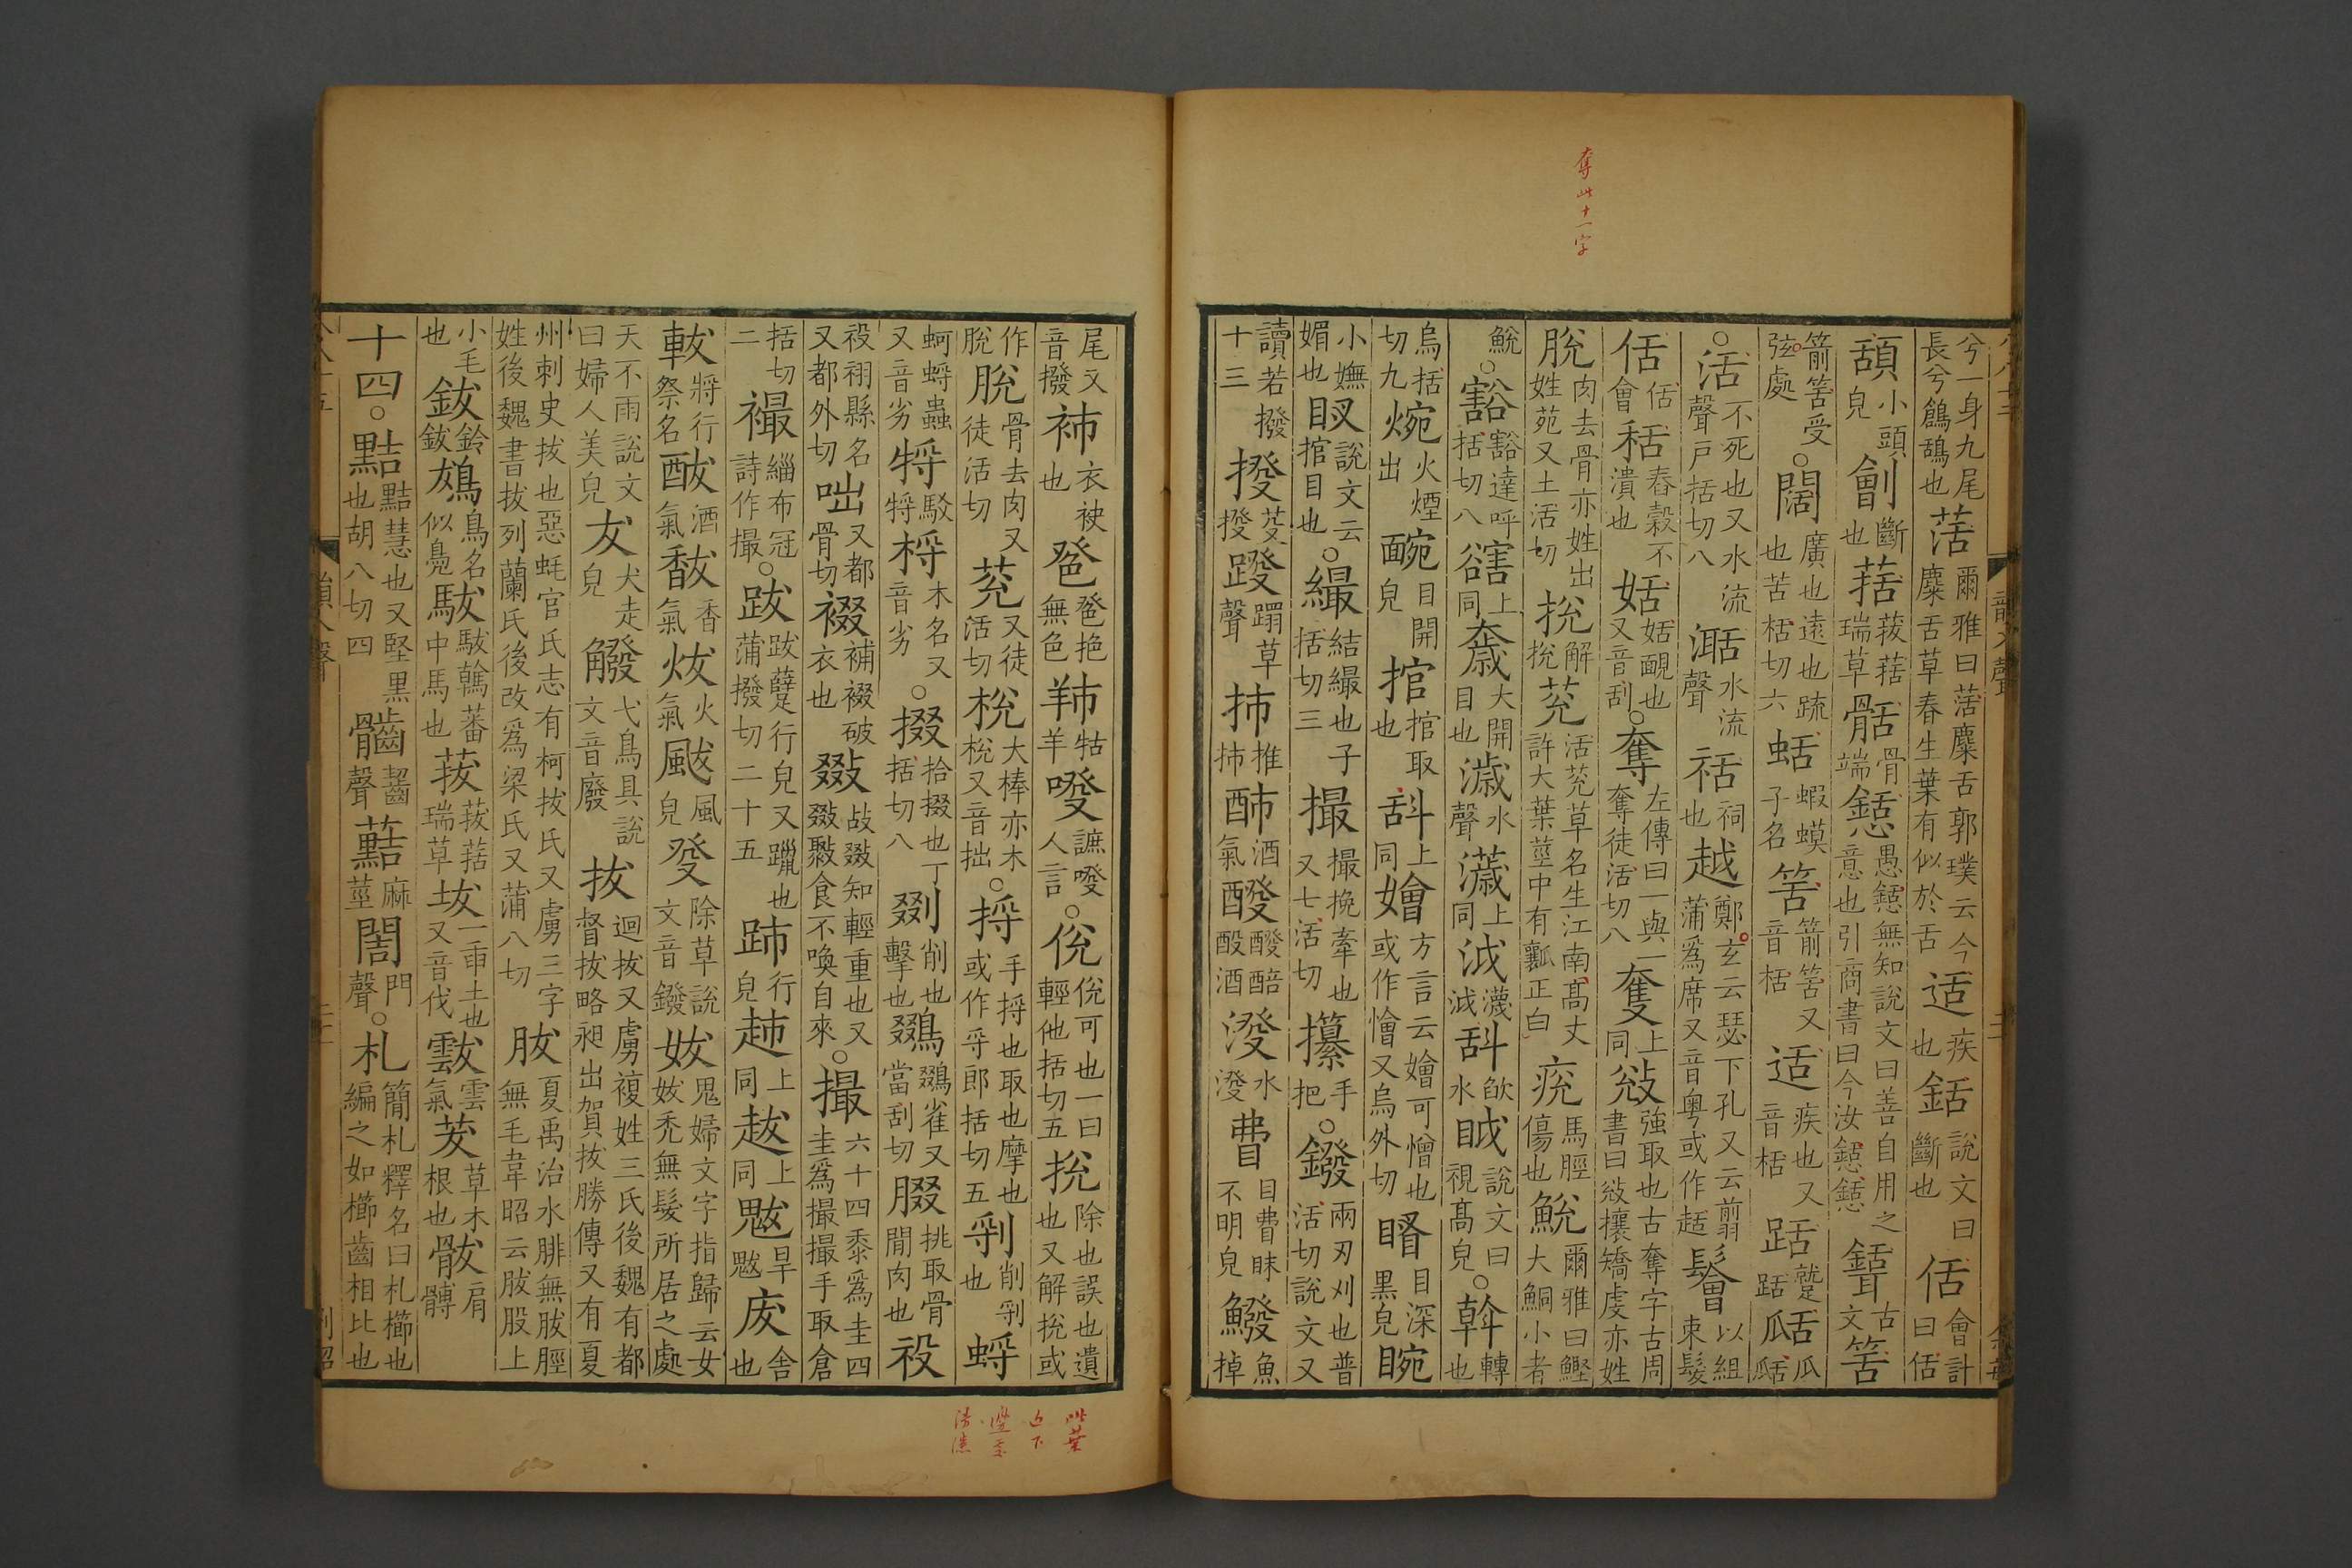 奪此十一字
兮一身九尾長兮鶬鴰也䒷爾雅曰䒷麋舌郭璞云今麋舌草春生葉有似於舌适疾也銛說文曰斷也佸會計曰佸
頢小頭皃劊斷也葀菝葀瑞草䯏骨端𢢫愚𢢫無知說文曰善自用之意也引商書曰今汝𢢫𢢫古文筈
箭筈受弦處○闊廣也遠也疏也苦栝切六蛞蝦蟆子名筈箭筈又音栝适疾也又音栝趏䠓趏𤬏瓜
○活不死也又水流聲戶括切八𣵿水流聲祮祠也越鄭玄云瑟下孔又云翦蒲爲席又音粵或作趏鬠以組束髮
佸佸會秳舂穀不潰也姡姡䩄也又音刮○奪左傳曰一與一奪徒活切八奞上同敓強取也古奪字古周書曰敓攘矯虔亦姓
脫肉去骨亦姓出姓苑又土活切挩解挩莌活莌草名生江南高丈許大葉莖中有瓤正白痥馬脛傷也鮵爾雅曰鰹大鮦小者
鮵○豁豁達呼括切八䜢上同奯大開目也濊水聲𤁵上同泧瀎泧𣂪㰲水眓說文曰視高皃○斡轉也
烏括切九焥火煙出䩊目開皃捾捾取也㪾上同嬒方言云嬒可憎也或作懀又烏外切䁾目深黑皃䀩
小嫵媚也䀛說文云捾目也○繓結繓也子括切三撮撮挽牽也又七活切攥手把○鏺兩刃刈也普活切說文又
讀若撥十三撥芟撥蹳蹋草聲㧊推㧊𨠓酒氣醱醱醅酘酒潑水潑𥄱目𥄱眜不明皃鱍魚掉
尾又音撥䘠衣袂也𦫙𦫙艴無色𦍧牯羊㗶謶㗶人言○侻侻可也一曰輕他括切五挩除也誤也遺也又解挩或
作脫骨去肉又徒活切莌又徒活切梲大棒亦木梲又音拙○捋手捋也取也摩也或作寽郎括切五剟削剟也蛶
蚵蛶蟲又音劣㸹駁㸹桴木名又音劣○掇拾掇也丁括切八剟削也擊也鵽鵽雀又當刮切腏挑取骨間肉也祋
祋祤縣名又都外切咄又都骨切裰補裰破衣也敠敁敠知輕重也又敠聚食不喚自來○撮六十四黍爲圭四圭爲撮撮手取倉
括切二襊緇布冠詩作撮○跋跋躠行皃又躐也蒲撥切二十五䟛行皃𧺺上同䟦上同魃旱魃废舍也
軷將行祭名𨠭酒氣馛香氣炦火氣颰風皃癹除草說文音鏺妭鬼婦文字指歸云女妭禿無髮所居之處
天不雨說文曰婦人美皃犮犬走皃𧤅弋鳥具說文音廢拔迴拔又虜複姓三氏後魏有都督拔略昶出賀拔勝傳又有夏
州刺史拔也惡蚝官氏志有柯拔氏又虜三字姓後魏書拔列蘭氏後改爲梁氏又蒲八切胈夏禹治水腓無胈脛無毛韋昭云胈股上
小毛也鈸鈴鈸鴔鳥名似鳧䮂䮂䮧蕃中馬也菝菝葀瑞草坺一臿土也又音伐䨚雲氣茇草木根也䯋肩髆
十四○黠黠慧也又堅黑也胡八切四䶪齧聲𪎸麻莖䦪門聲○札簡札釋名曰札櫛也編之如櫛齒相比也
此葉